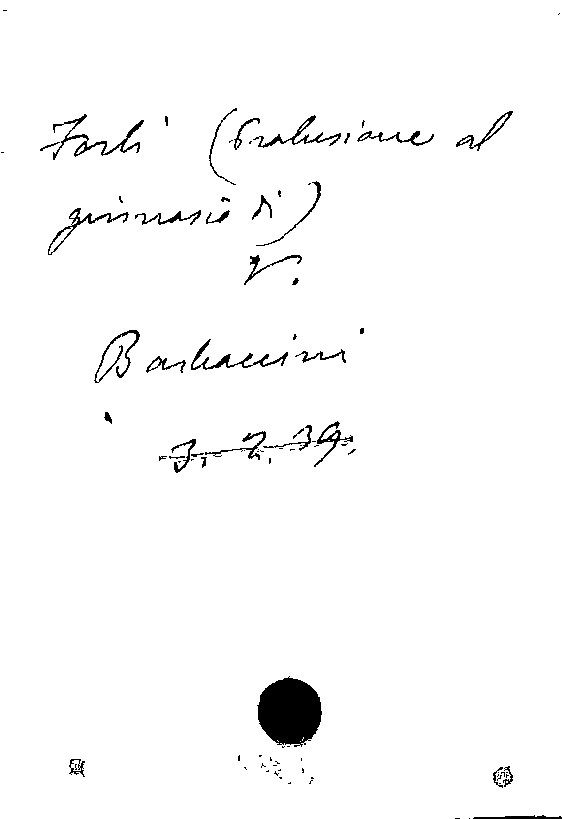 Forlì (Prolusione al
ginnasio di)
V.
Barbaccini
3. 2. 39.